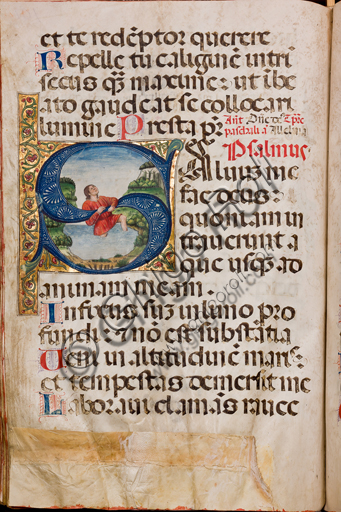 et te redēptor querere
Repelle tu caliginē intrī
secus q̄ȝ maxime: ut ī be
ato gaudeat se collocari
lumine Presta pr̄
Psalmus
Saluūme
fac deus:
quoniam in
trauerunt a
que usq̄ȝ ad
animam meam.
Infixus sūȝ in limo pro
fundi: ⁊ nō est substātia
Ueni in altitudinē maris
et tempestas demersit me
Laboraui clamās rauce